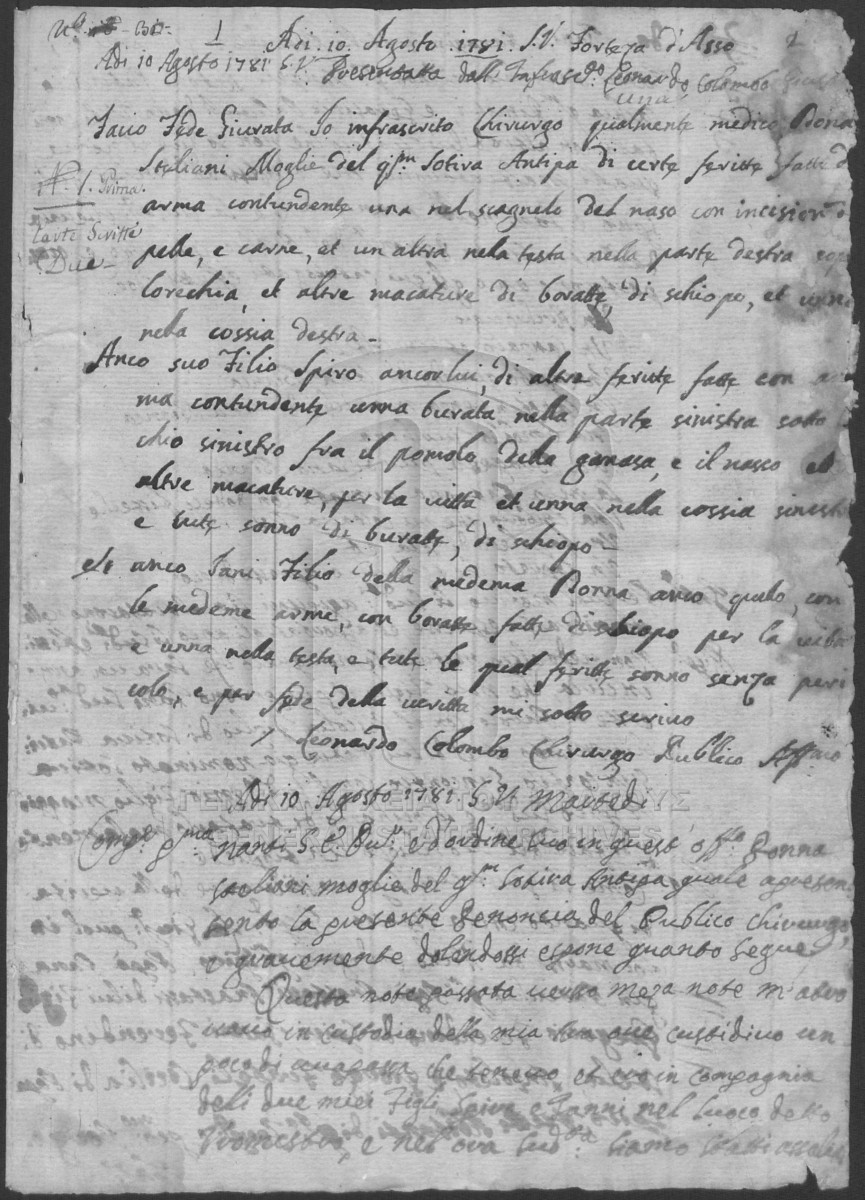 1
Adi 10 Agosto 1781 S.V. Forteza d'Asso
Adi 10 Agosto 1781 S.V.
Presentata dall' Infrasc.to Leonardo Colombo
Facio Fede Giurata Io infrascrito Chirurgo qualmente medico Dona
Steliani Moglie del q.m Sotira Antipa di certe feritte fatte d
No. 1. Prima
arma contundente una nel scagnelo del naso con incision d
Carte Scritte
pelle, e carne, et un altra nela testa nella parte destra
Due
lorechia, et altre macature di boratte, di schiopo, et unna
nella cossia destra -
Anco suo Filio Spiro ancor lui, di altre feritte fatte con ar
ma contundente unna burata nella parte sinistra sotto
chio sinistro fra il pomolo della ganasa, e il nasso et
altre macature, per la vitta et unna nella cossia sinest
e tute sonno di buratte, di schiopo -
et anco Jani Filio della medema Donna anco quelo, con
le medeme arme, con boratte fatte di schiopo per la vitta
e unna nella testa, e tute le qual feritte sonno senza peri
colo, e per fede della veritta mi sotto scrivo
Leonardo Colombo Chirurgo Publico Aff.mo
ΓΕΝΙΚΑ ΑΡΧΕΙΑ ΤΟΥ ΚΡΑΤΟΥΣ
GENERAL STATE ARCHIVES
Adi 10 Agosto 1781 S.V. Martedi
nanti S.E. e d'ordine suo in quest' off.o Donna
Steliani moglie del q.m Sotira Antipa quale apresen
tento la presente Denoncia del Publico Chirurgo,
e gravemente dolendossi espone quanto segue
Questa note passata verso meza note m'atro
vavo in custodia della mia
poco di che tenevo et ero in compagnia
deli due miei Figli Spiro e Janni nel luoco detto
e nel' ora sud.ta siamo stati assal